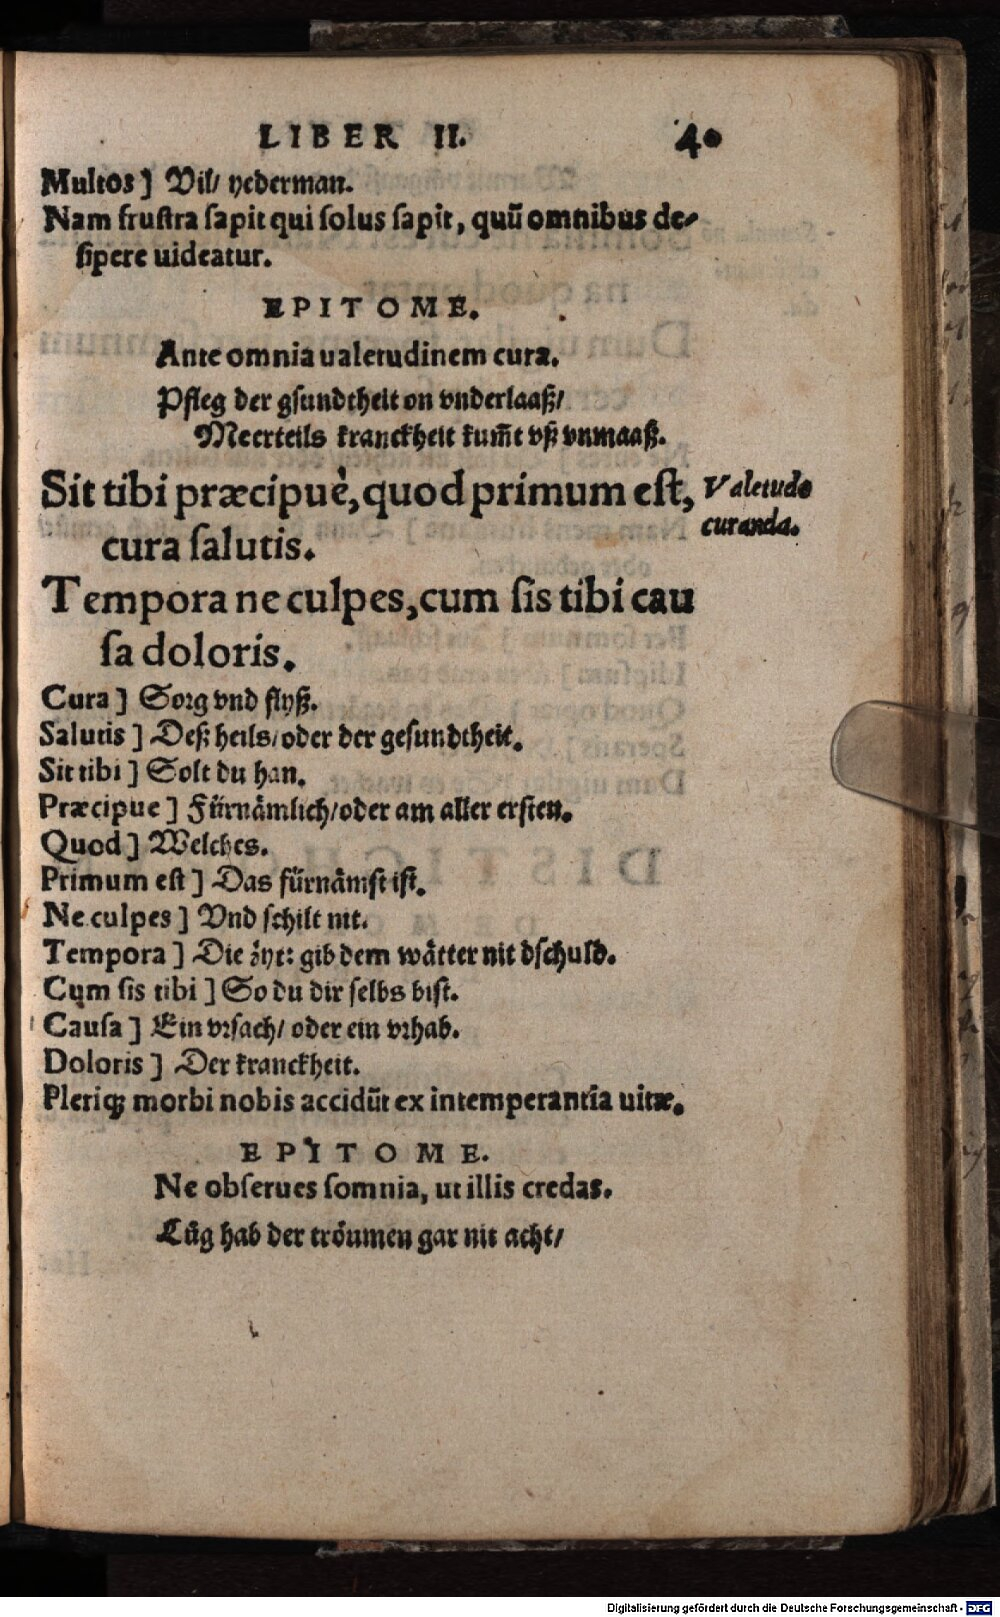 LIBER II. 40
Multos] Vil/ yederman.
Nam frustra sapit qui solus sapit, quũ omnibus de-
sipere uideatur.
EPITOME.
Ante omnia ualetudinem cura.
Pfleg der gsundtheit on vnderlaaß/
Meerteils kranckheit kum̃t vß vnmaaß.
Sit tibi præcipuè, quod primum est,
cura salutis.
Valetudo
curanda.
Tempora ne culpes, cum sis tibi cau
sa doloris.
Cura] Sorg vnd flyß.
Salutis] Deß heils/ oder der gesundtheit.
Sit tibi] Solt du han.
Præcipue] Fürnämlich/ oder am aller ersten.
Quod] Welches.
Primum est] Das fürnämst ist.
Ne culpes] Vnd schilt nit.
Tempora] Die zyt: gib dem wätter nit dschuld.
Cum sis tibi] So du dir selbs bist.
Causa] Ein vrsach/ oder ein vrhab.
Doloris] Der kranckheit.
Pleriqꝫ morbi nobis accidũt ex intemperantia uitæ.
EPITOME.
Ne obserues somnia, ut illis credas.
Lůg hab der tröumen gar nit acht/
Digitalisierung gefördert durch die Deutsche Forschungsgemeinschaft - DFG